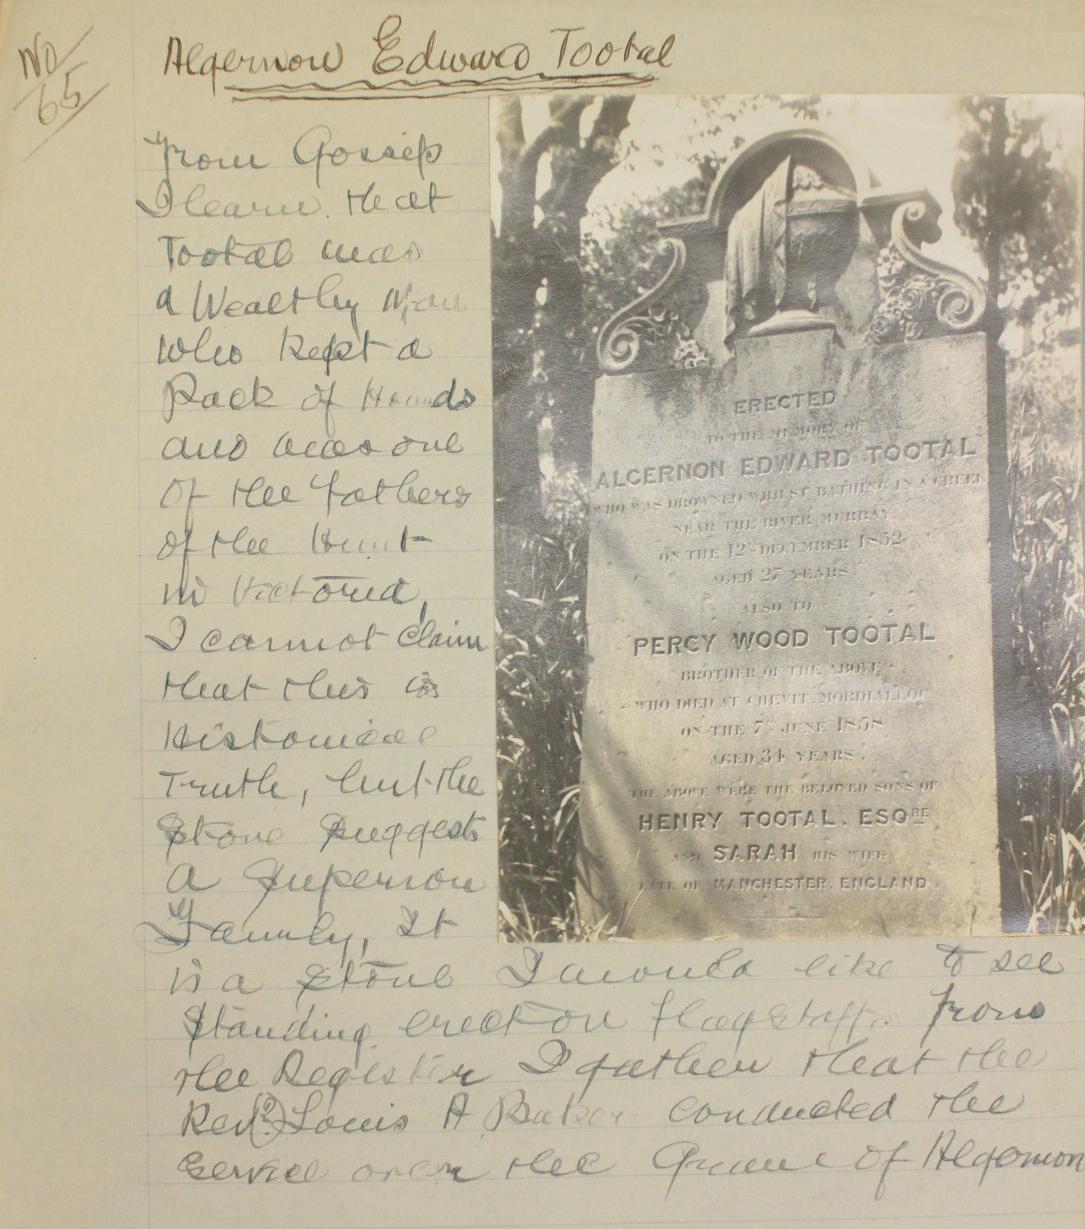 No 65
Algernon Edward Tootal
From Gossip
I learn that
Tootal was
a Wealthy Man
who kept a
Pack of Hounds
and was one
of the fathers
of the Hunt
in Victoria,
I cannot claim
that this is
Historical
Truth, but the
Stone suggests
a Superior
Family, It
is a stone I would like to see
standing erect on Flagstaff. From
the Register I gather that the
Rev(?) Louis A Baker conducted the
Service over the Grave of Algernon
ERECTED
TO THE MEMORY OF
ALGERNON EDWARD TOOTAL
WHO WAS DROWNED WHILST BATHING IN A CREEK
NEAR THE RIVER MURRAY
ON THE 12TH DECEMBER 1852
AGED 27 YEARS
ALSO TO
PERCY WOOD TOOTAL
BROTHER OF THE ABOVE
WHO DIED AT CHEVIT. MORDIALLOC
ON THE 7TH JUNE 1858
AGED 34 YEARS.
THE ABOVE WERE THE BELOVED SONS OF
HENRY TOOTAL. ESQRE
AND SARAH HIS WIFE
LATE OF MANCHESTER. ENGLAND.